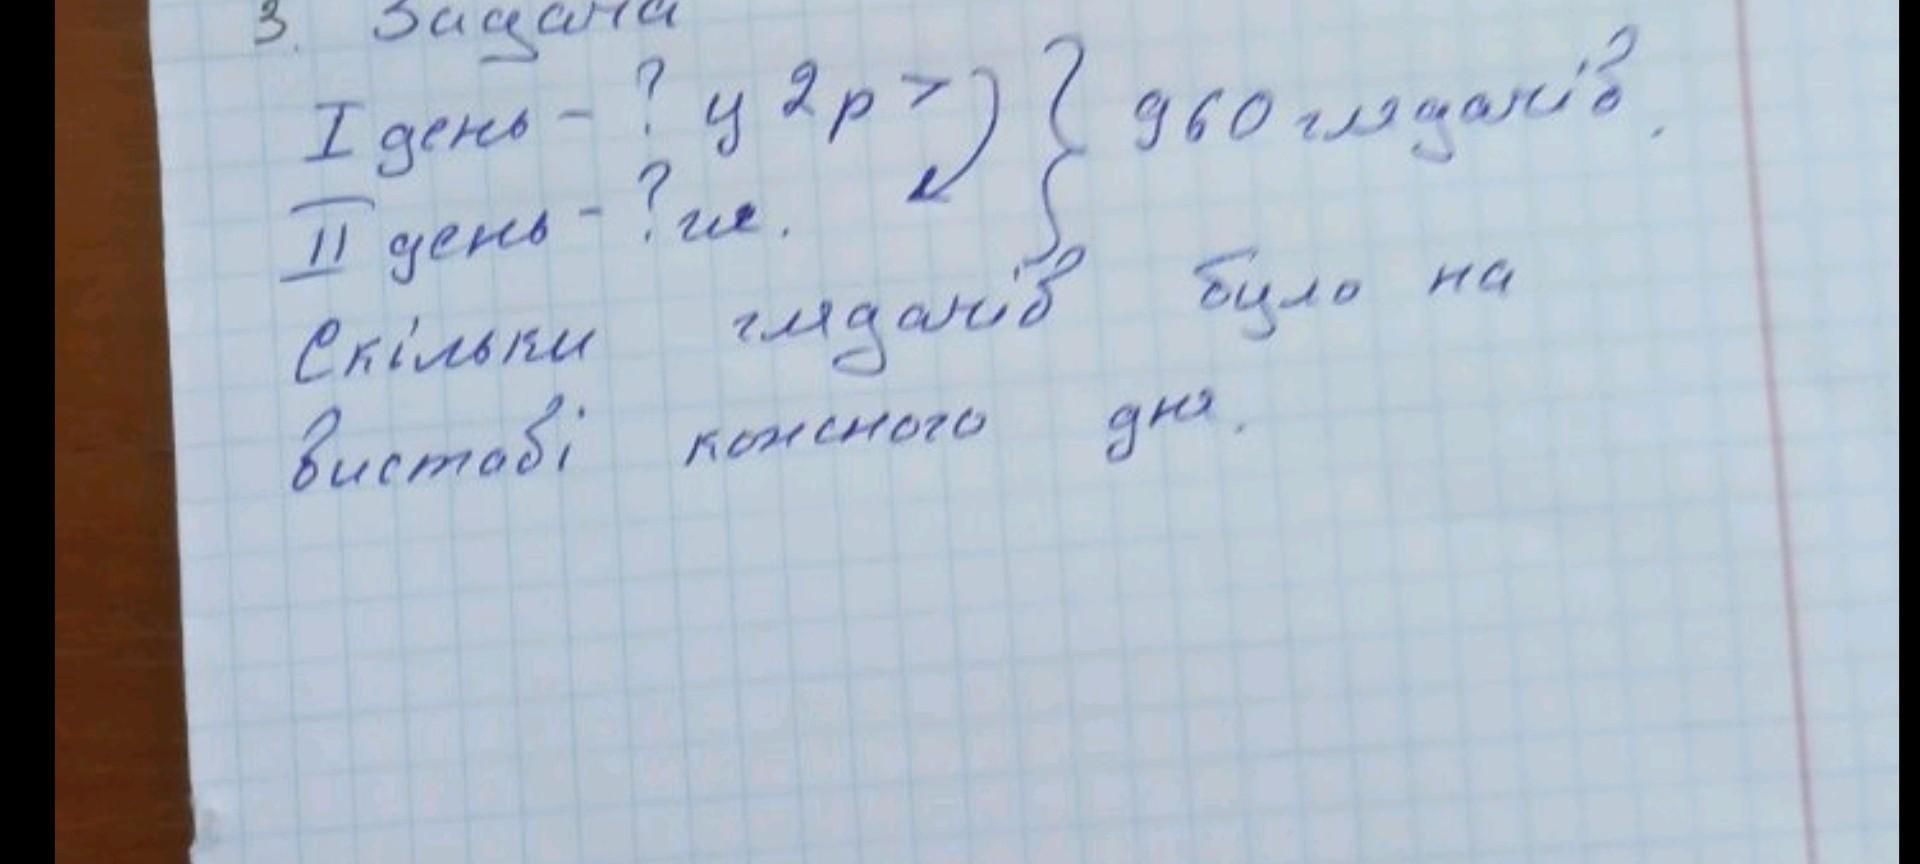 3. Задача
I день - ? у 2 р >
960 глядачів.
II день - ? гл.
Скільки глядачів було на
виставі кожного дня.